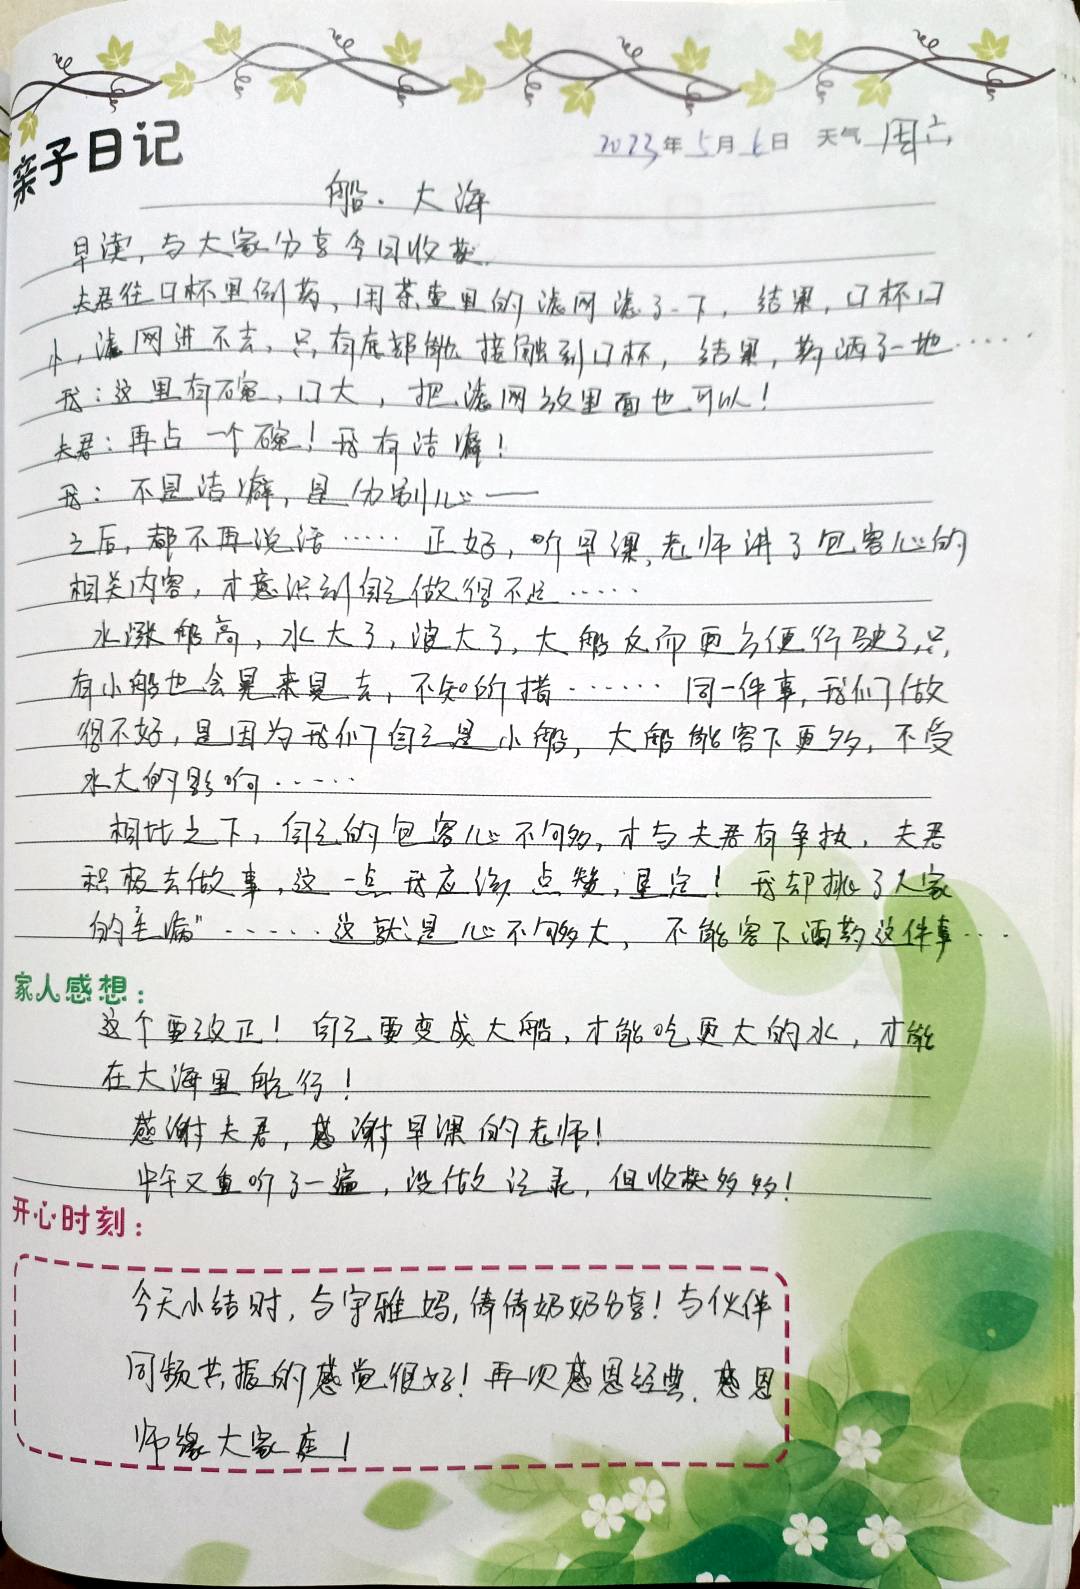 亲子日记
2023年5月6日 天气 周六
船·大海
早读，与大家分享今日收获。
夫君往口杯里倒药，用茶壶里的滤网滤了一下，结果，口杯口
小，滤网进不去，只有底部能接触到口杯，结果，药洒了一地……
我：这里有碗，口大，把滤网放里面也可以！
夫君：再占一个碗！我有洁癖！
我：不是洁癖，是分别心——
之后，都不再说话……正好，听早课，老师讲了包容心的
相关内容，才意识到自己做得不足……
水涨船高，水大了，浪大了，大船反而更方便行驶了，只
有小船也会晃来晃去，不知所措……同一件事，我们做
得不好，是因为我们自己是小船，大船能容下更多，不受
水大的影响……
相比之下，自己的包容心不够，才与夫君有争执，夫君
积极去做事，这一点我应该点赞，肯定！我却挑了人家
的毛病"……这就是心不够大，不能容下洒药这件事…
家人感想：
这个要改正！自己要变成大船，才能吃更大的水，才能
在大海里航行！
感谢夫君，感谢早课的老师！
中午又重听了一遍，没做记录，但收获多多！
开心时刻：
今天小结时，与宇雅妈，倩倩奶奶分享！与伙伴
同频共振的感觉很好！再次感恩经典，感恩
师缘大家庭！